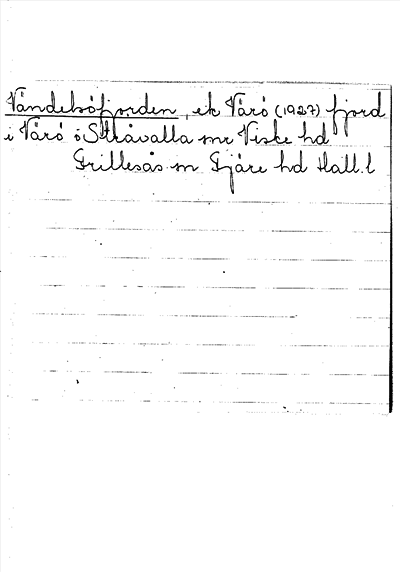 Våndelsöfjorden, ek Värö (1927) fjord
i Värö o Stråvalla snr Viske hd
Frillesås sn Fjäre hd Hall. l